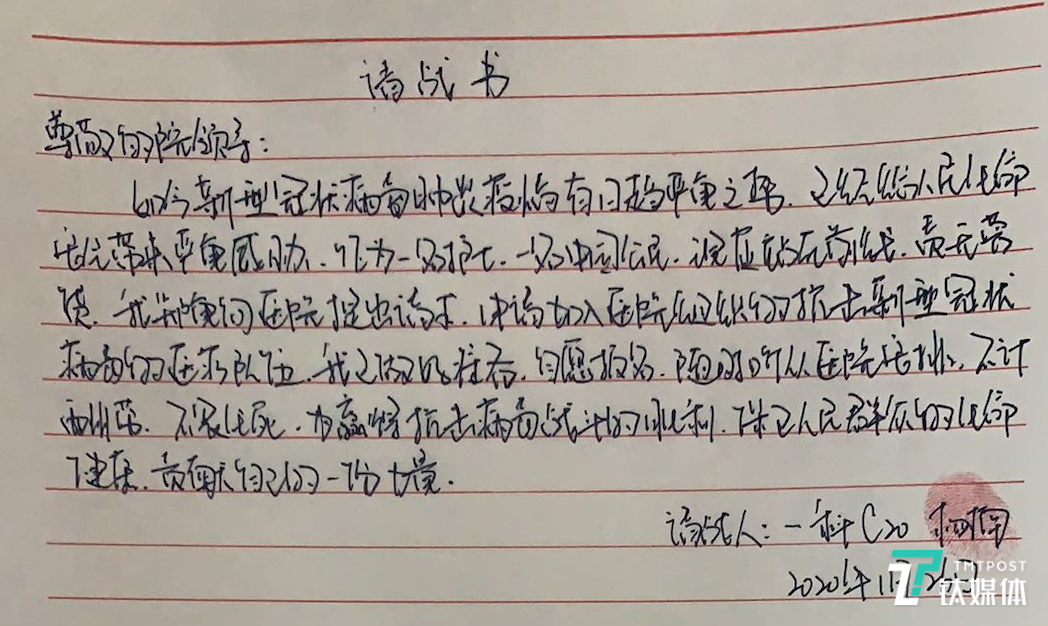 请战书
尊敬的院领导：
如今新型冠状病毒肺炎疫情有日趋严重之势，已经给人民生命
安全带来严重威胁，作为一名护士，一名中国公民，说应站在前线，责无旁
贷，我郑重向医院提出请求，申请加入医院组织的抗击新型冠状
病毒的医疗队伍，我已做好准备，自愿报名，随时听从医院安排，不计
酬劳，不畏生死，为赢得抗击病毒战斗的胜利，保卫人民群众的生命
健康，贡献自己的一份力量。
请战人：一科C20
2020年1月26日
TMTPOST
钛媒体